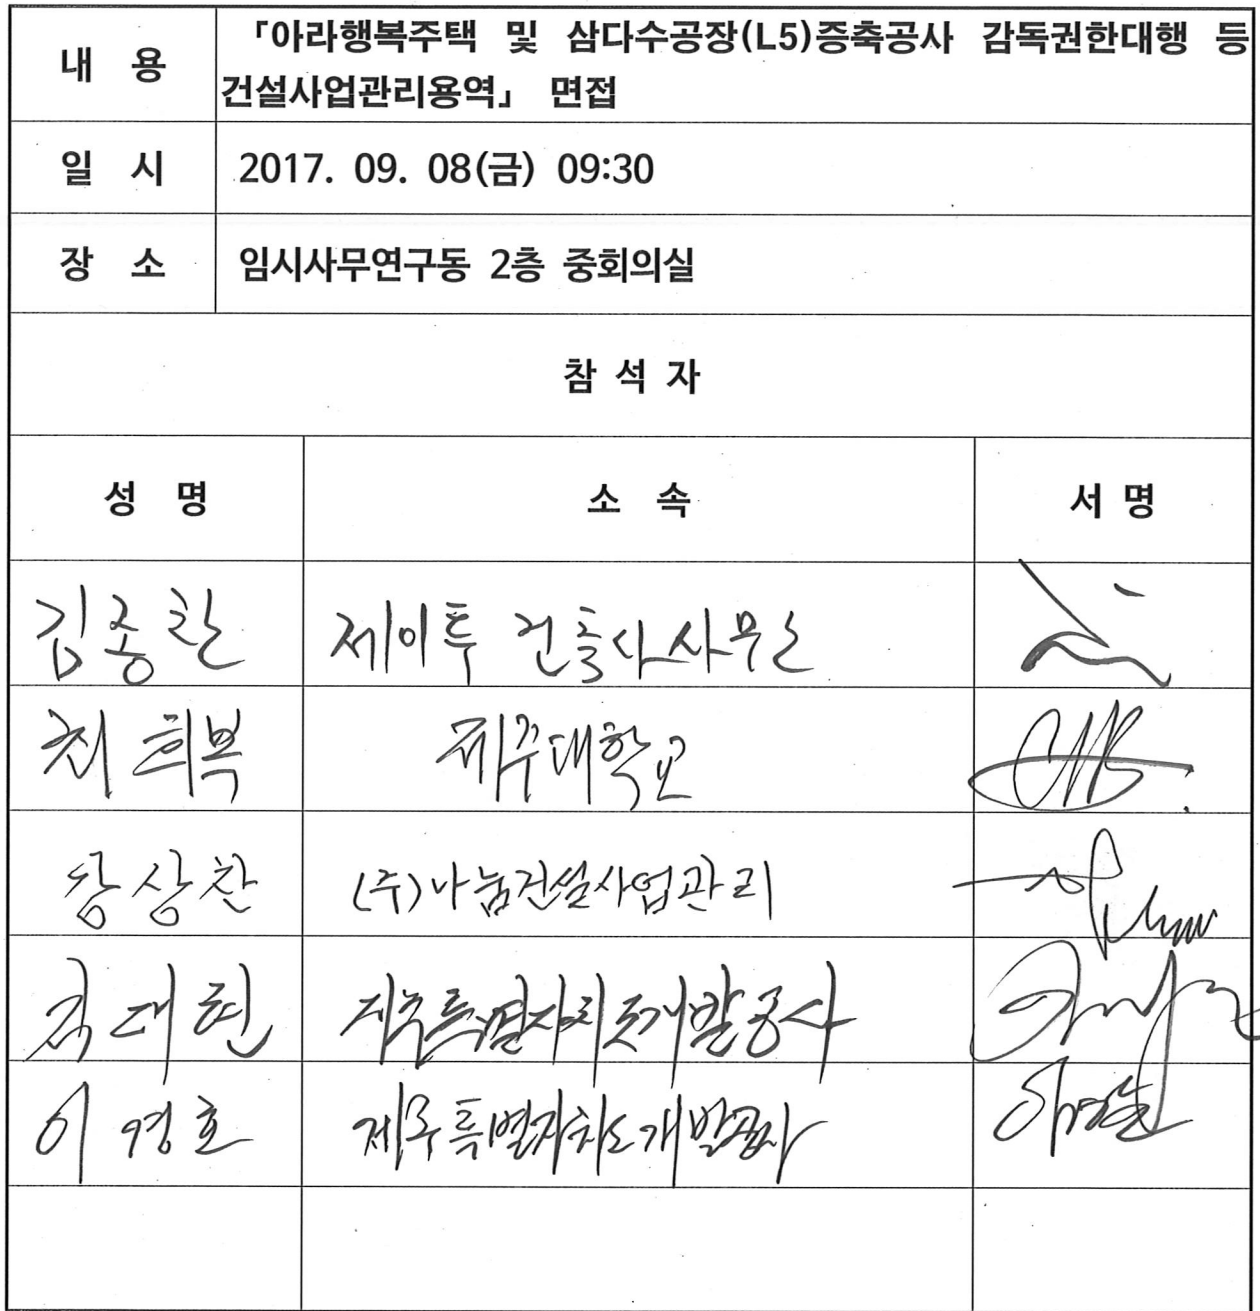 내 용
「아라행복주택 및 삼다수공장(L5)증축공사 감독권한대행 등
건설사업관리용역」 면접
일 시
2017. 09. 08(금) 09:30
장 소
임시사무연구동 2층 중회의실
참 석 자
성 명 소 속 서 명
김종찬 제이투 건축사사무소
최희복 제주대학교
상찬 (주)나눔건설사업관리
김대현 제주특별자치도개발공사
이영호 제주특별자치도개발공사